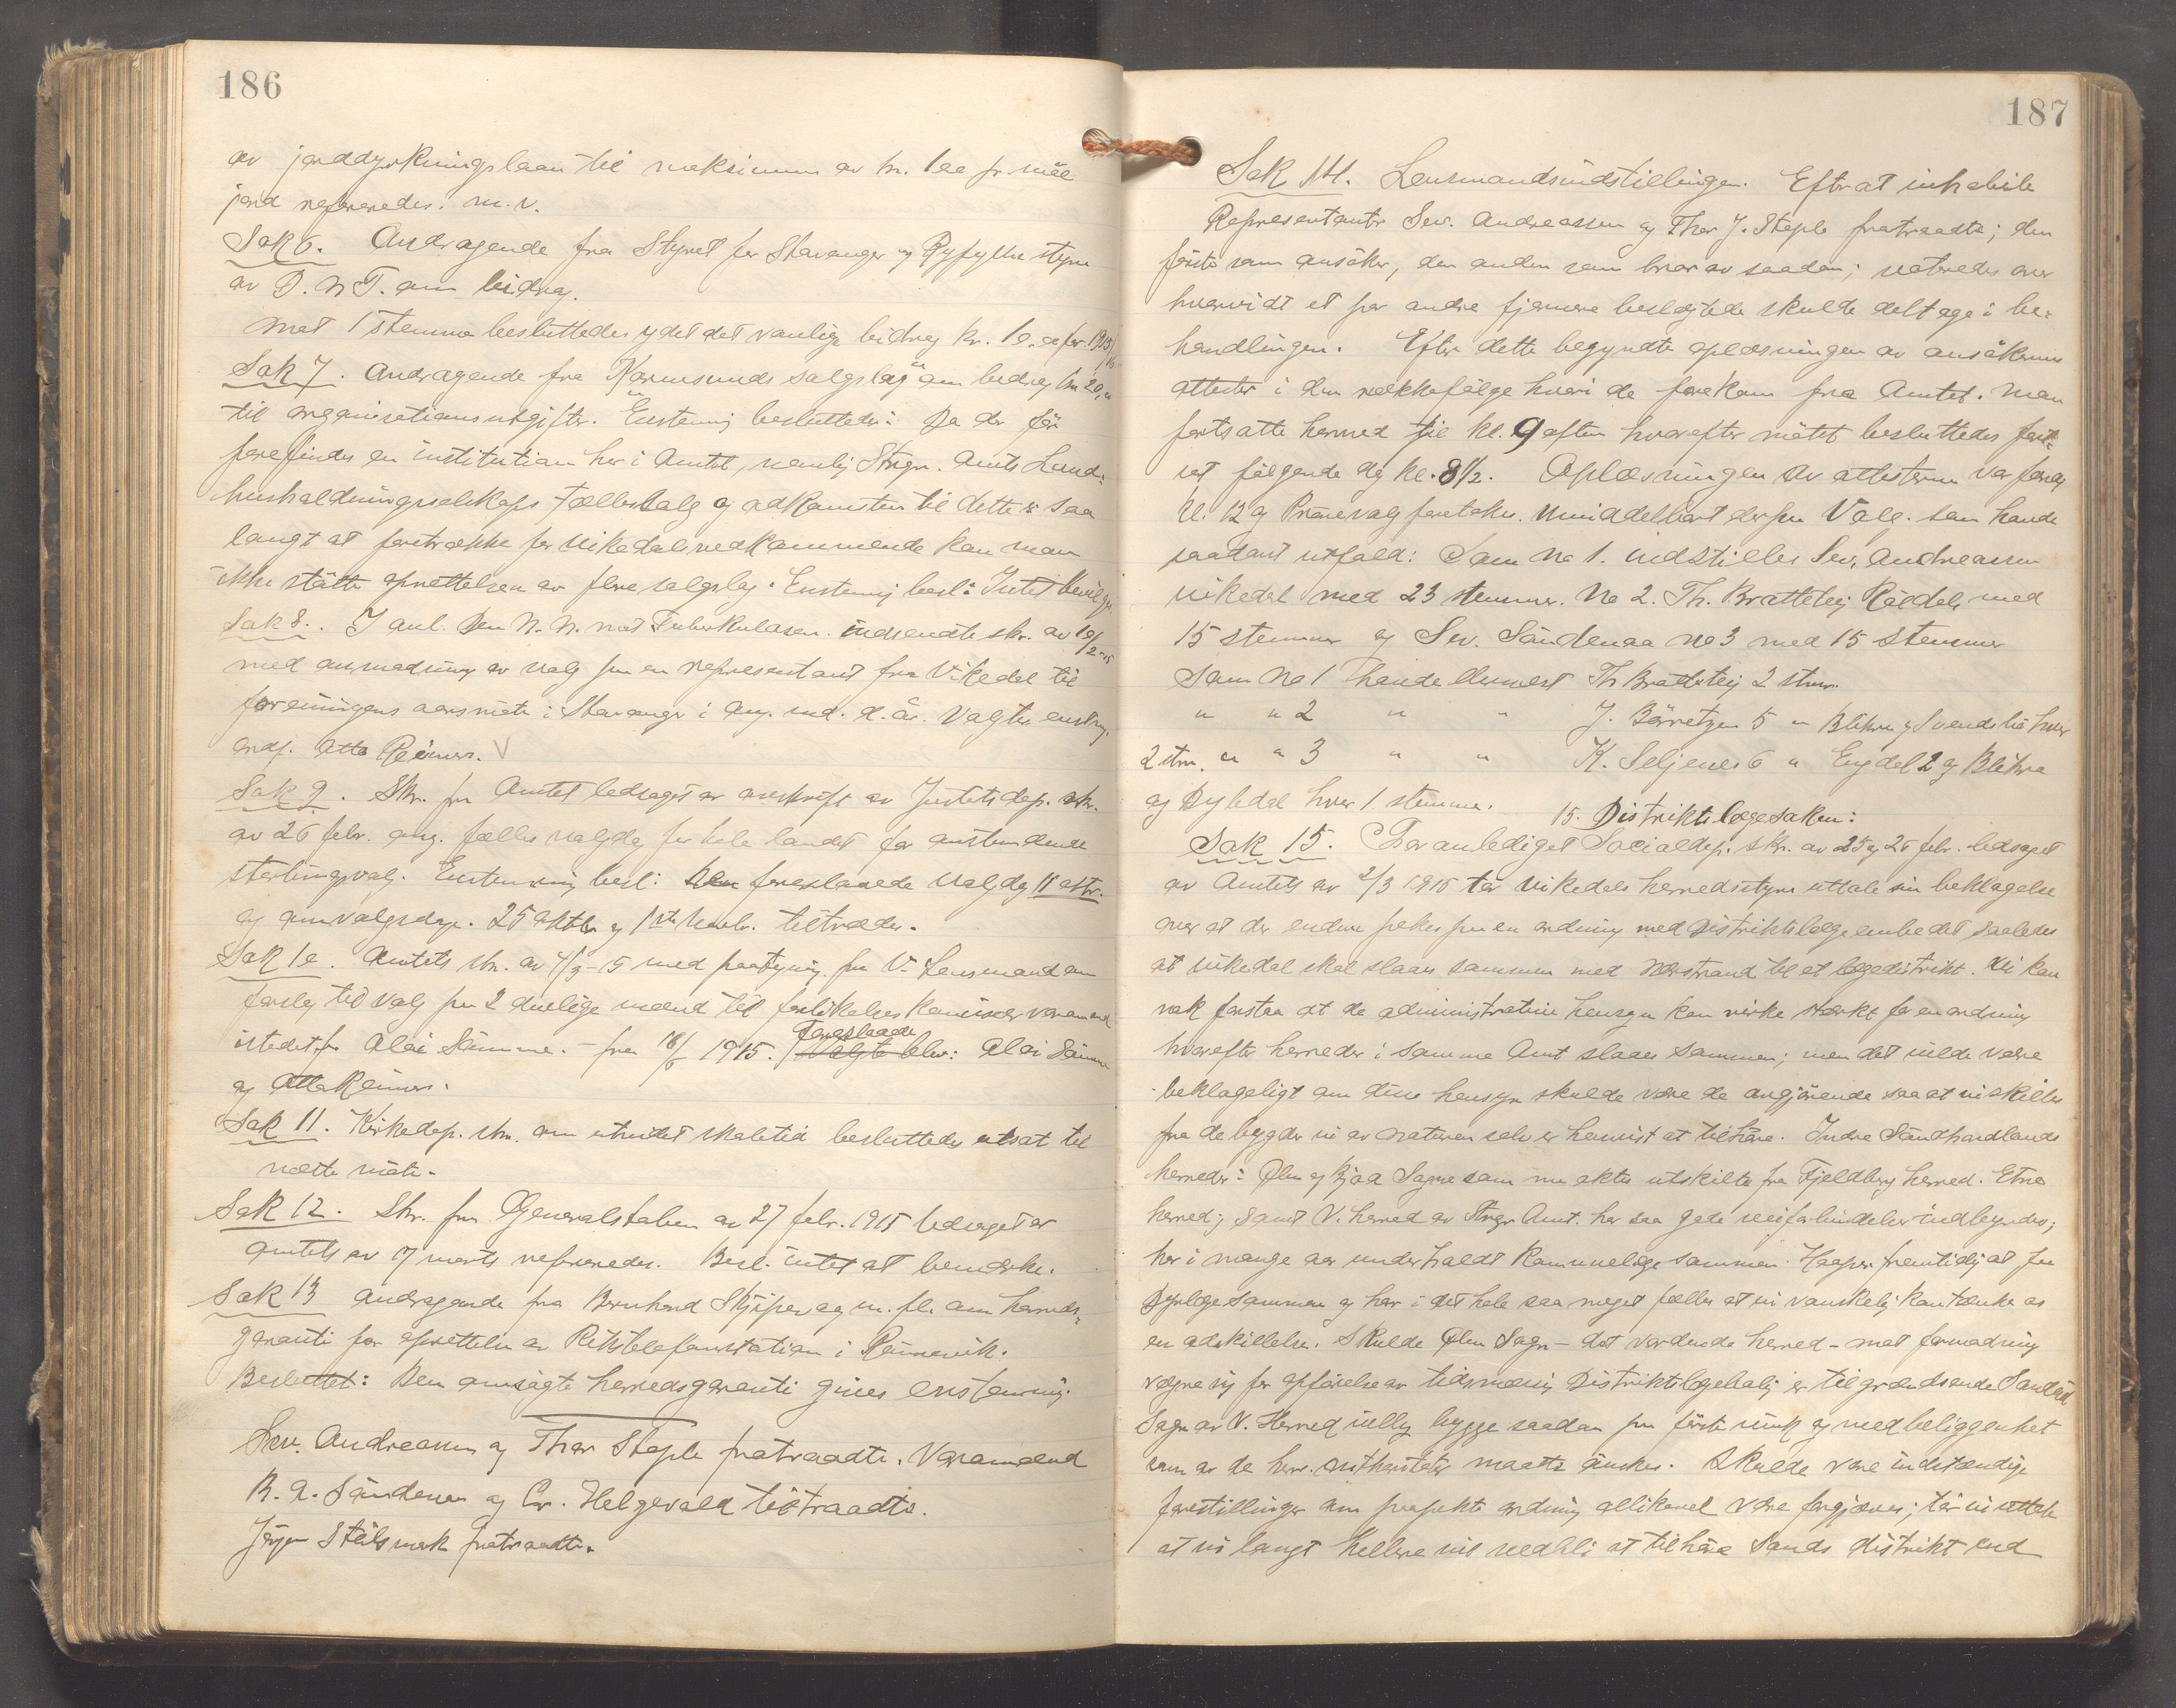 186
av jorddyrkningslaan til maksimum av kr. 100 pr. maal
jord refereredes. m. v.
Sak 6. Andragende fra Styret for Stavanger og Ryfylke styre
av D. N. T. om bidrag.
Mot 1 stemme besluttedes ydet det vanlige bidrag kr. 10,00 for 1915/16
Sak 7. Andragende fra "Karmsunds salgslag" om bidrag kr 20,00
til organisationsutgifter. Enstemmig besluttedes: Da der før
forefindes en institution her i Amtet, nemlig Stvgr. Amts Land-
husholdningsselskaps Fællessalg og adkomsten til dette er saa
langt at foretrække for Vikedals vedkommende kan man
ikke støtte oprettelsen av flere salgslag. Enstemmig besl: Intet bevilges.
Sak 8. I anl. Den N. N. mot Tuberkulosen. indsendte skr. av 10/2-15
med anmodning av valg paa en representant fra Vikedal til
foreningens aarsmøte i Stavanger i aug. md. d. år. Valgtes enstem.
ordf. Otto Reimers. V
Sak 9. Skr. fra Amtet ledsaget av avskrift av Justitsdep. skr.
av 26 febr. ang. fælles valgdag for hele landet for anstundende
stortingsvalg. Enstemmig besl: Den foreslaaede valgdag 11 oktr.
og omvalgsdage. 25 oktbr og 1ste novbr. tiltrædes.
Sak 10. Amtets skr. av 4/3-15 med paategning fra V. Lensmand om
forslag til valg paa 2 duelige mænd til forlikelseskommissær varamand
istedetfor Olai Sømme. - fra 18/6 1915. Foreslaaede Valgte blev: Olai Sømme
og Otto Reimers.
Sak 11. Kirkedep. skr. om utvidet skoletid besluttedes utsat til
næste møte.
Sak 12. Skr. fra Generalstaben av 27 febr. 1915 ledsaget av
amtets av 7 marts refereredes. Besl. intet at bemærke.
Sak 13 andragende fra Bernhard Skjipevaag m. fl. om herreds-
garanti for oprettelse av Rikstelefonstation i Reinevik.
Besluttet: Den omsøgte herredsgaranti gives enstemmig.
Sev. Andreassen og Thor Stople fratraadte. Varamænd
R. A. Søndenaa og Cr. Helgevold tiltraadte.
Jørgen Stølsmark fratraadte.
187
Sak 14. Lensmandsindstillingen. Efterat inhabile
Representanter Sev. Andreassen og Thor J. Stople fratraadte; den
første som ansøker, den anden som bror av saadan; voteredes over
hvorvidt et par andre fjernere beslegtede skulde deltage i be-
handlingen. Efter dette begyndte oplæsningen av ansøkernes
attester i den rækkefølge hvori de forekom fra Amtet. Man
fortsatte hermed til kl. 9 aften hvorefter møtet besluttedes fort-
sat følgende dag kl. 8½. Oplæsningen av attesterne var færdig
kl. 12 og Prøvevalg foretokes. Umiddelbart derpaa Valg. som havde
saadant utfald: Som no 1. indstilles Sev. Andreassen
Vikedal med 23 stemmer. No 2. Th. Bratteteig Røldal, med
15 stemmer og Sev. Søndenaa no 3 med 15 stemmer
Som No 1 havde dernest Th Bratteteig 2 stem.
" " 2 " " J. Børretzen 5 " Blikra og Svendsbø hver
2 stm. " " 3 " " K. Seljenes 6 " Engdal 2 og Blikra
og Dybdal hver 1 stemme.
15. Distriktslægesaken:
Sak 15. Foranlediget Socialdep. skr. av 25 og 26 febr. ledsaget
av Amtets av 2/3 1915 tør Vikedals herredsstyre uttale sin beklagelse
over at der endnu pekes paa en ordning med Distriktslægeembedet saaledes
at Vikedal skal slaaes sammen med Nærstrand til et lægedistrikt. Vi kan
nok forstaa at de administrative hensyn kan virke stærkt for en ordning
hvorefter herreder i samme Amt slaaes sammen; men det vilde være
beklageligt om disse hensyn skulde være de avgjørende saa at vi skilles
fra de bygder vi av naturen selv er henvist at tilhøre. Indre Søndhordlands
herreder: Ølen og Bjoa Sogne som nu aktes utskilte fra Fjeldberg herred. Etne
herred; samt V. herred av Stvgr Amt. har saa gode veiforbindelser indbyrdes;
har i mange aar underholdt kommunelæge sammen. Haaper fremtidig at faa
Dyrlæge sammen og har i det hele saa meget fælles at vi vanskelig kan tænke os
en adskillelse. Skulde Ølen Sogn - det vordende herred - mot formodning
vegre sig for opførelse av tidsmæssig Distriktslægebolig er tilgrændsende Sandeid
Sogn av V. Herred villig bygge saadan paa første vink og med beliggenhet
som av de herr. Autoriteter maatte ønskes. Skulde vore indstændige
forestillinger om paapekte ordning allikevel være forgjæves; tør vi uttale
at vi langt hellere vil vedbli at tilhøre Sands distrikt end